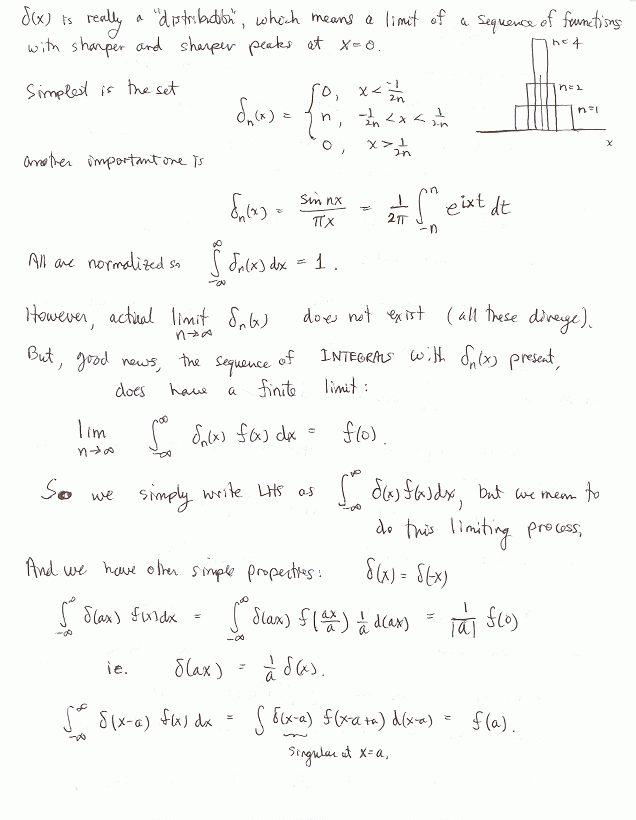 δ(x) is really a "distribution", which means a limit of a sequence of functions
with sharper and sharper peaks at x=0.
n=4
Simplest is the set
n=2
δₙ(x) = { 0, x < -1/2n
n, -1/2n < x < 1/2n
0, x > 1/2n
n=1
x
another important one is
δₙ(x) = sin nx / πx = 1/2π ∫₋ₙⁿ e^{ixt} dt
All are normalized so ∫_{-∞}^{∞} δₙ(x) dx = 1.
However, actual limit_{n→∞} δₙ(x) does not exist (all these diverge).
But, good news, the sequence of INTEGRALS with δₙ(x) present,
does have a finite limit:
lim_{n→∞} ∫_{-∞}^{∞} δₙ(x) f(x) dx = f(0).
So we simply write LHS as ∫_{-∞}^{∞} δ(x) f(x) dx, but we mean to
do this limiting process,
And we have other simple properties: δ(x) = δ(-x)
∫_{-∞}^{∞} δ(ax) f(x) dx = ∫_{-∞}^{∞} δ(ax) f(ax/a) 1/a d(ax) = 1/|a| f(0)
ie. δ(ax) = 1/a δ(x).
∫_{-∞}^{∞} δ(x-a) f(x) dx = ∫ δ(x-a) f(x-a+a) d(x-a) = f(a).
singular at x=a,